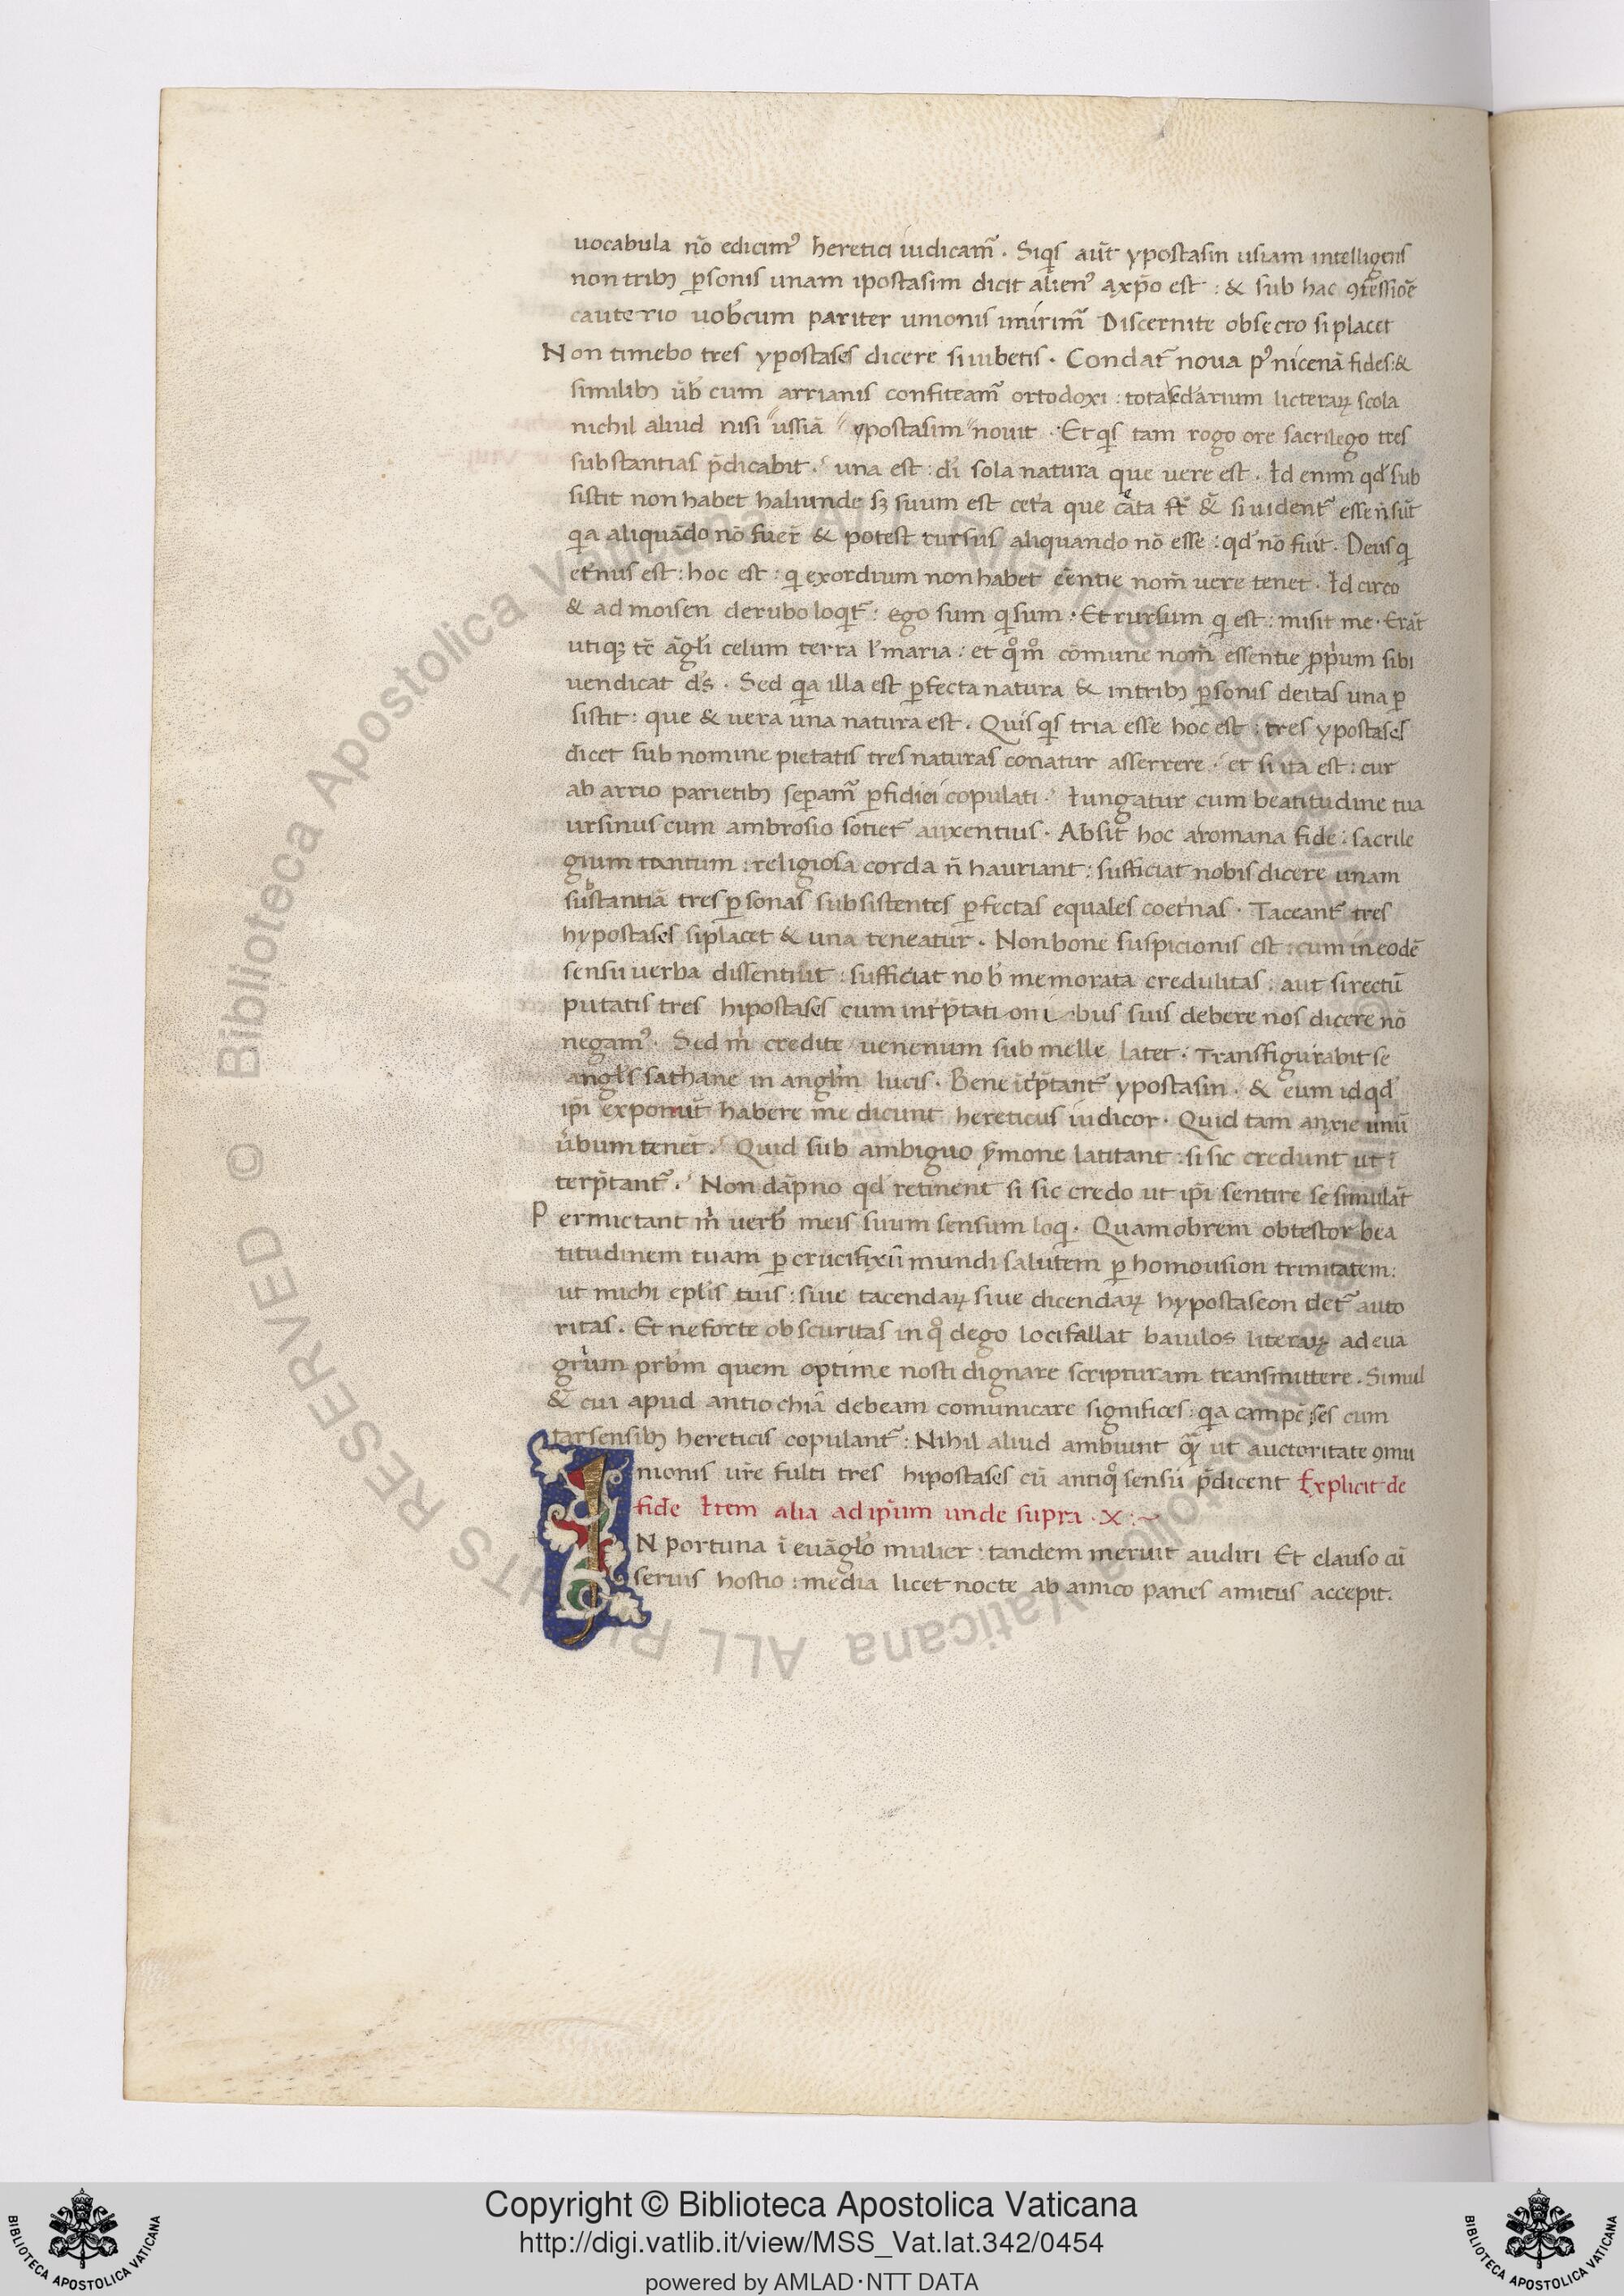 uocabula nō edicimꝰ heretici iudicam̃ . Siqͥs aūt ypostasin usiam intelligens
non tribꝫ ꝑsonis unam ipostasim dicit alienꝰ axp̄o est : & sub hac ꝯfessiōe
cauterio uob̃cum pariter unionis inurim̃ Discernite obsecro si placet
Non timebo tres ypostases dicere si iubetis . Condat̃ noua pꝰ nicenā fides : &
similibꝫ u̅b̃ cum arrianis confiteam̃ ortodoxi : tota sc̄larium licteraꝝ scola
nichil aliud nisi ussiā ypostasim nouit . Et qͥs tam rogo ore sacrilego tres
substantias p̄dicabit . una est : di̅ sola natura que uere est . Id enim qd̓ sub
sistit non habet haliunde sꝫ suum est cet̓a que c̄ata st̃ & si uident̃ esse n̄ su̅t
qͥa aliquādo nō fuer̃ & potest rursus aliquando nō esse : qd̓ nō fuit . Deus qͥ
et̓nus est : hoc est : qͥ exordium non habet eēntie nom̃ uere tenet . Id circo
& ad moisen de rubo loqͥt̃ : ego sum qͥ sum . Et rursum qͥ est : misit me . Erāt
utiqꝫ tc̄ āgl̓i celum terra ł maria : et qͦmͦ cōmune nom̃ essentie ꝓpͥum sibi
uendicat d̓s . Sed qͥa illa est ꝑfecta natura & in tribꝫ ꝑsonis deitas una ꝑ
sistit : que & uera una natura est . Quis qͥs tria esse hoc est : tres ypostases
dicet sub nomine pietatis tres naturas conatur asserrere . et si ita est : cur
ab arrio parietibꝫ seꝑam̃ ꝑfidiei copulati . Iungatur cum beatitudine tua
ursinus cum ambrosio sotiet̃ auxentius . Absit hoc a romana fide : sacrile
gium tantum : religiosa corda n̄ hauriant : sufficiat nobis dicere unam
substantiā tres ꝑsonas subsistentes ꝑfectas equales coet̓nas . Taceant̃ tres
hypostases si placet & una teneatur . Non bone suspicionis est : cum in eodē
sensu uerba dissentiūt : sufficiat nob̓ memorata credulitas : aut si rectū
putatis tres hipostases cum int̓p̄tationibus suis debere nos dicere nō
negamꝰ . Sed m̓ credite uenenum sub melle latet . Transfigurabit se
angl̓s sathane in angl̓m lucis . Bene it̓p̄tant̃ ypostasin . & cum id qd̓
ip̄i exponūt habere me dicunt hereticus iudicor . Quid tam anxie unū
u̓bum tenēt . Quid sub ambiguo s̓mone latitant : si sic credunt ut ī
terp̄tant̃ . Non dāpno qd̓ retinent si sic credo ut ip̄i sentire se simulāt
Permictant m̓ uerb̓ meis suum sensum loqͥ . Quamobrem obtestor bea
titudinem tuam ꝑ crucifixū mundi salutem ꝑ homousion trinitatem :
ut michi epl̓is tuis : siue tacendaꝝ siue dicendaꝝ hypostaseon det̃ auto
ritas . Et ne forte obscuritas in qͦ dego loci fallat baiulos literaꝝ ad eua
grium prb̓m quem optime nosti dignare scripturam transmittere . Simul
& cui apud antiochiā debeam comunicare significes : qͥa campēses cum
tarsensibꝫ hereticis copulant̃ : Nihil aliud ambiunt qͣꝫ ut auctoritate ꝯmu
nionis ur̃e fulti tres hipostases cū antiqͦ sensu p̄dicent Explicit de
fide Item alia ad ip̄um unde supra . x : ~
IN portuna ī euāgl̓o mulier : tandem meruit audiri Et clauso cū
seruis hostio : media licet nocte ab amico panes amicus accepit .
Copyright © Biblioteca Apostolica Vaticana
http://digi.vatlib.it/view/MSS_Vat.lat.342/0454
powered by AMLAD·NTT DATA
BIBLIOTECA APOSTOLICA VATICANA
BIBLIOTECA APOSTOLICA VATICANA